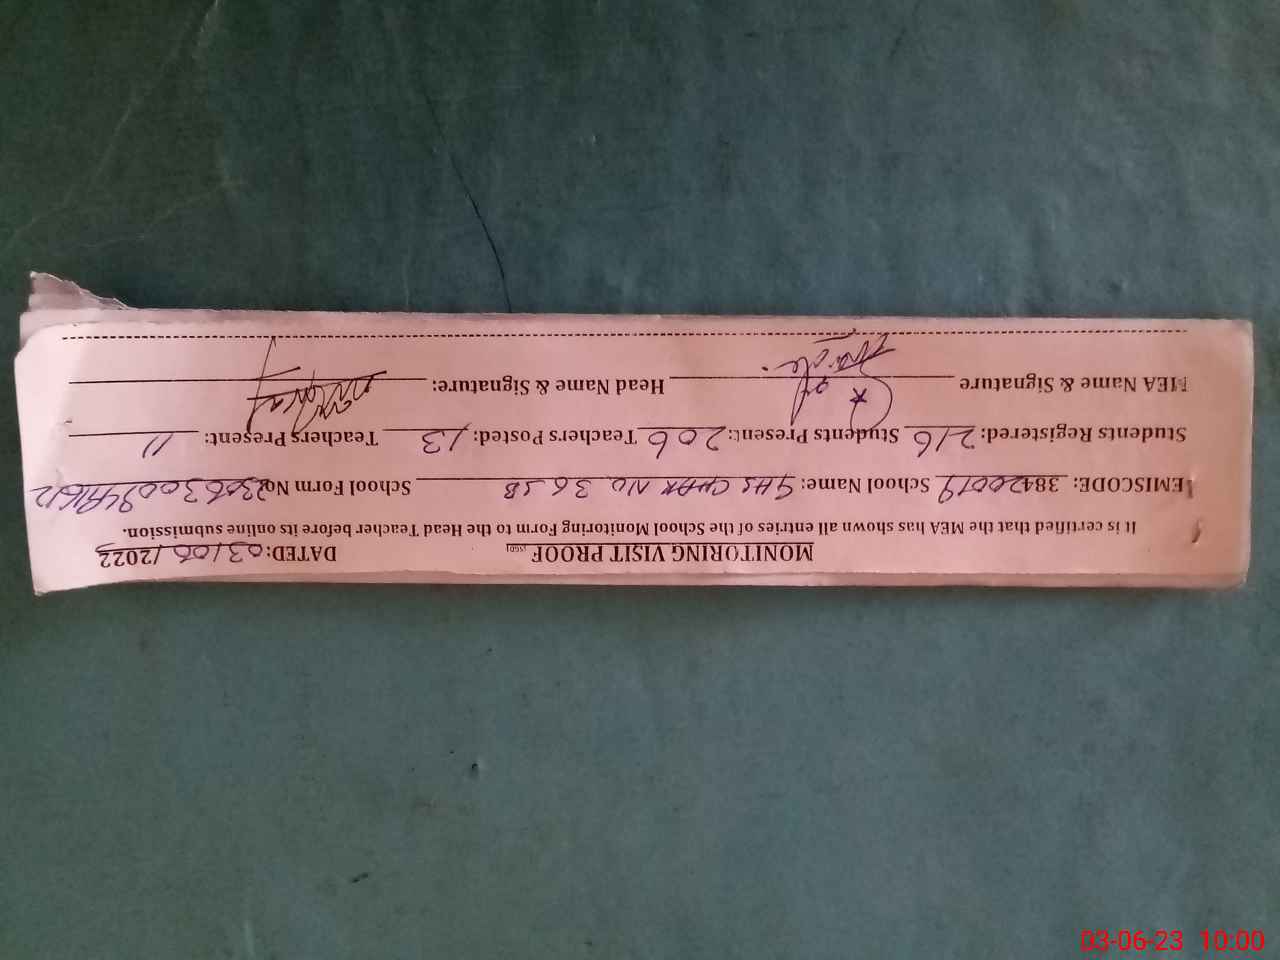 MONITORING VISIT PROOF [SGD] DATED: 03/06/2023
It is certified that the MEA has shown all entries of the School Monitoring Form to the Head Teacher before its online submission.
EMISCODE: 38420079 School Name: GHS CHAK NO 36 SB School Form No
Students Registered: 216 Students Present: 206 Teachers Posted: 13 Teachers Present: 11
MEA Name & Signature Head Name & Signature:
03-06-23 10:00